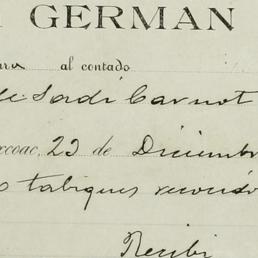 GERMAN
al contado
de Sadi Carnot
xcoac, 23 de Diciembr
s tabiques recocido
Recibi